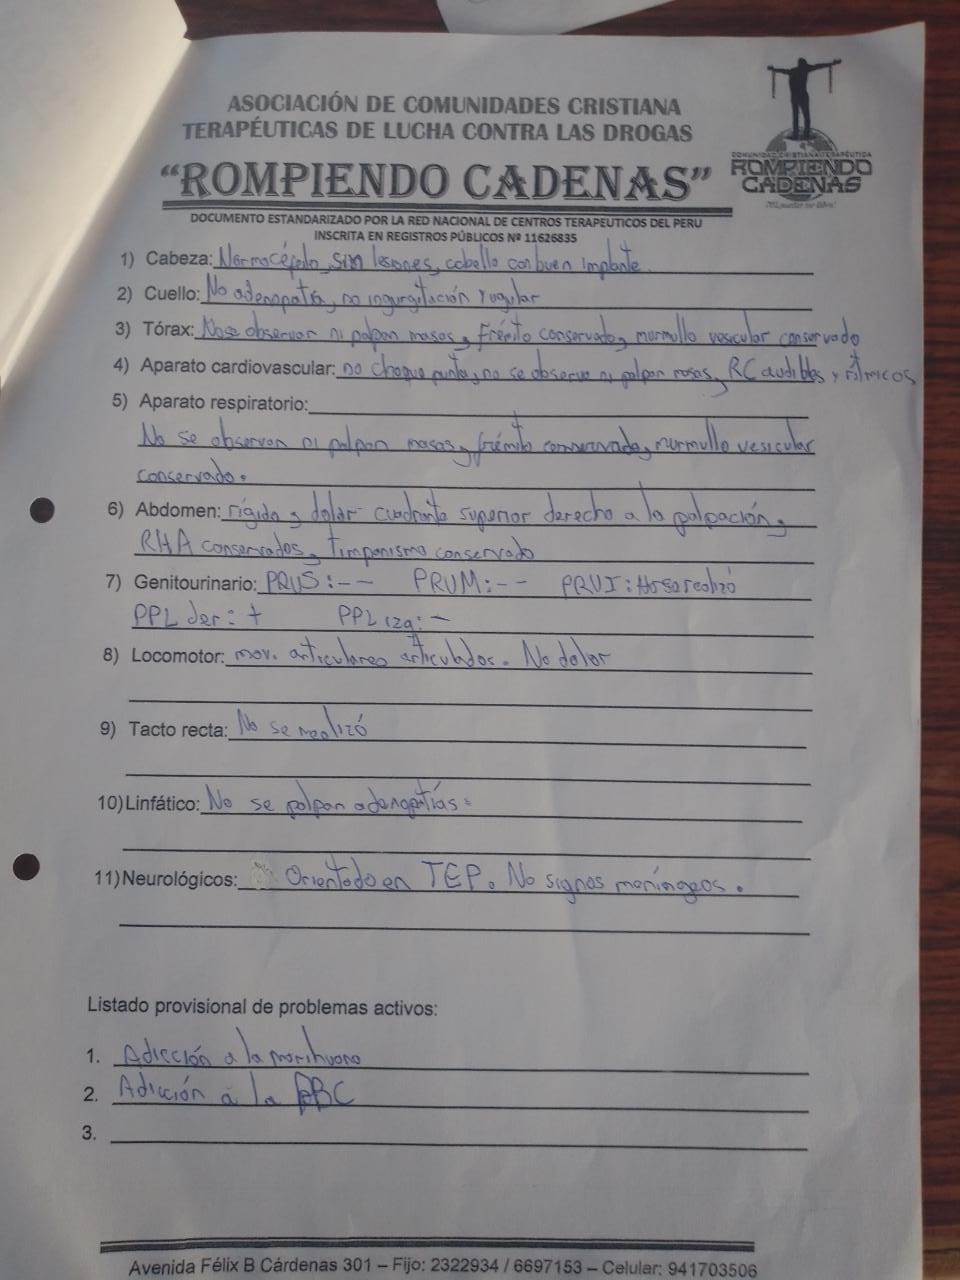 ASOCIACIÓN DE COMUNIDADES CRISTIANA
TERAPÉUTICAS DE LUCHA CONTRA LAS DROGAS
“ROMPIENDO CADENAS”
COMUNIDAD CRISTIANA TERAPÉUTICA
ROMPIENDO
CADENAS
DOCUMENTO ESTANDARIZADO POR LA RED NACIONAL DE CENTROS TERAPEUTICOS DEL PERU
INSCRITA EN REGISTROS PÚBLICOS Nº 11626835
1) Cabeza: Normocéfalo, sin lesiones, cabello con buen implante.
2) Cuello: No adenopatía, no ingurgitación yugular
3) Tórax: No se observan ni palpan masas, frémito conservado, murmullo vesicular conservado
4) Aparato cardiovascular: no choque punta, no se observa ni palpan masas, RC audibles y rítmicos
5) Aparato respiratorio:
No se observan ni palpan masas, frémito conservado, murmullo vesicular
conservado.
6) Abdomen: rígido y dolor cuadrante superior derecho a la palpación,
RHA conservados, timpanismo conservado
7) Genitourinario: PRUS: -- PRUM: -- PRUI: No se realizó
PPL der: + PPL izq: -
8) Locomotor: mov. articulares articulados. No dolor
9) Tacto recta: No se realizó
10) Linfático: No se palpan adenopatías.
11) Neurológicos: Orientado en TEP. No signos meníngeos.
Listado provisional de problemas activos:
1. Adicción a la marihuana
2. Adicción a la PBC
3.
Avenida Félix B Cárdenas 301 – Fijo: 2322934 / 6697153 – Celular: 941703506